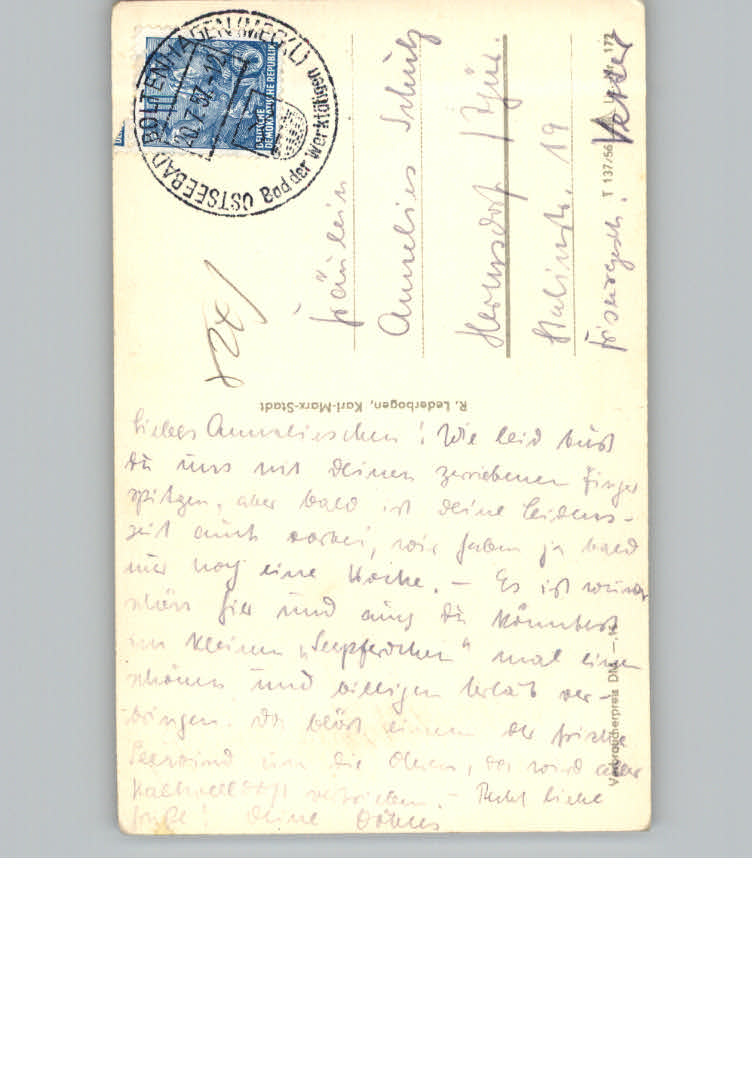 OSTSEEBAD BOLTENHAGEN (MECKL)
20.7.57-12
Bad der Werktätigen
DEUTSCHE
DEMOKRATISCHE REPUBLIK
824
Fräulein
Annelies Schulz
Hermsdorf / Thür.
Stalinstr. 19
T 137/56 172
R. Lederbogen, Karl-Marx-Stadt
Verbraucherpreis DM —.
liebes Annelieschen! Wie leid tust
du uns mit deinen zerriebenen Finger
spitzen, aber bald ist deine Leidens-
zeit auch vorbei, wir haben ja bald
nur noch eine Woche. — Es ist wunder
schön hier und auch du könntest
im kleinen „Seepferdchen" mal einen
schönen und billigen Urlaub ver-
bringen. Da bläst einem der frische
Seewind um die Ohren, da wird aller
vertrieben. — Recht liebe
Grüße! Deine